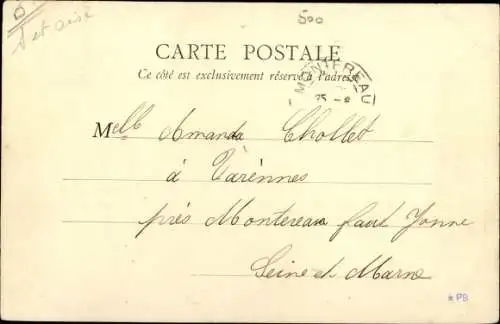 500
CARTE POSTALE
Ce côté est exclusivement réservé à l'adresse
MONTEREAU
25
Melle Amanda Chollet
à Varénnes
près Montereau faut Yonne
Seine et Marne
PB